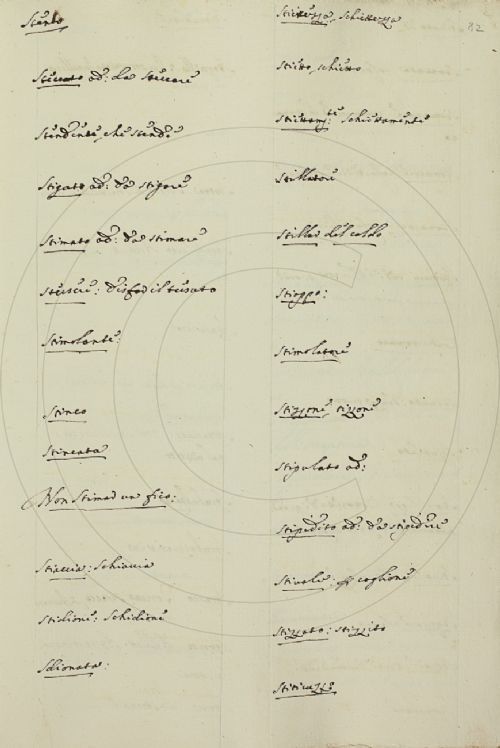 82
Stento
Steccato ad: da steccare
Stendente, che stende
Stigato ad: da stigare
Stimato ad: da stimare
disfar il tessuto
Stimolante:
Stinco
Stincata
Non stimar un fico:
Stiaccia: schiaccia
Stidione: schidione
Sdionata:
Stiettezza, schiettezza
Stietto, schietto
Stiettamte. schiettamente
Stillatore
Stille del caldo
Stioppo:
Stimolatore
Stizzone, tizzone
Stipulato ad:
Stipidito ad: da stipidire
Stivale: coglione
Stizzato: stizzito
Stiticuzzo